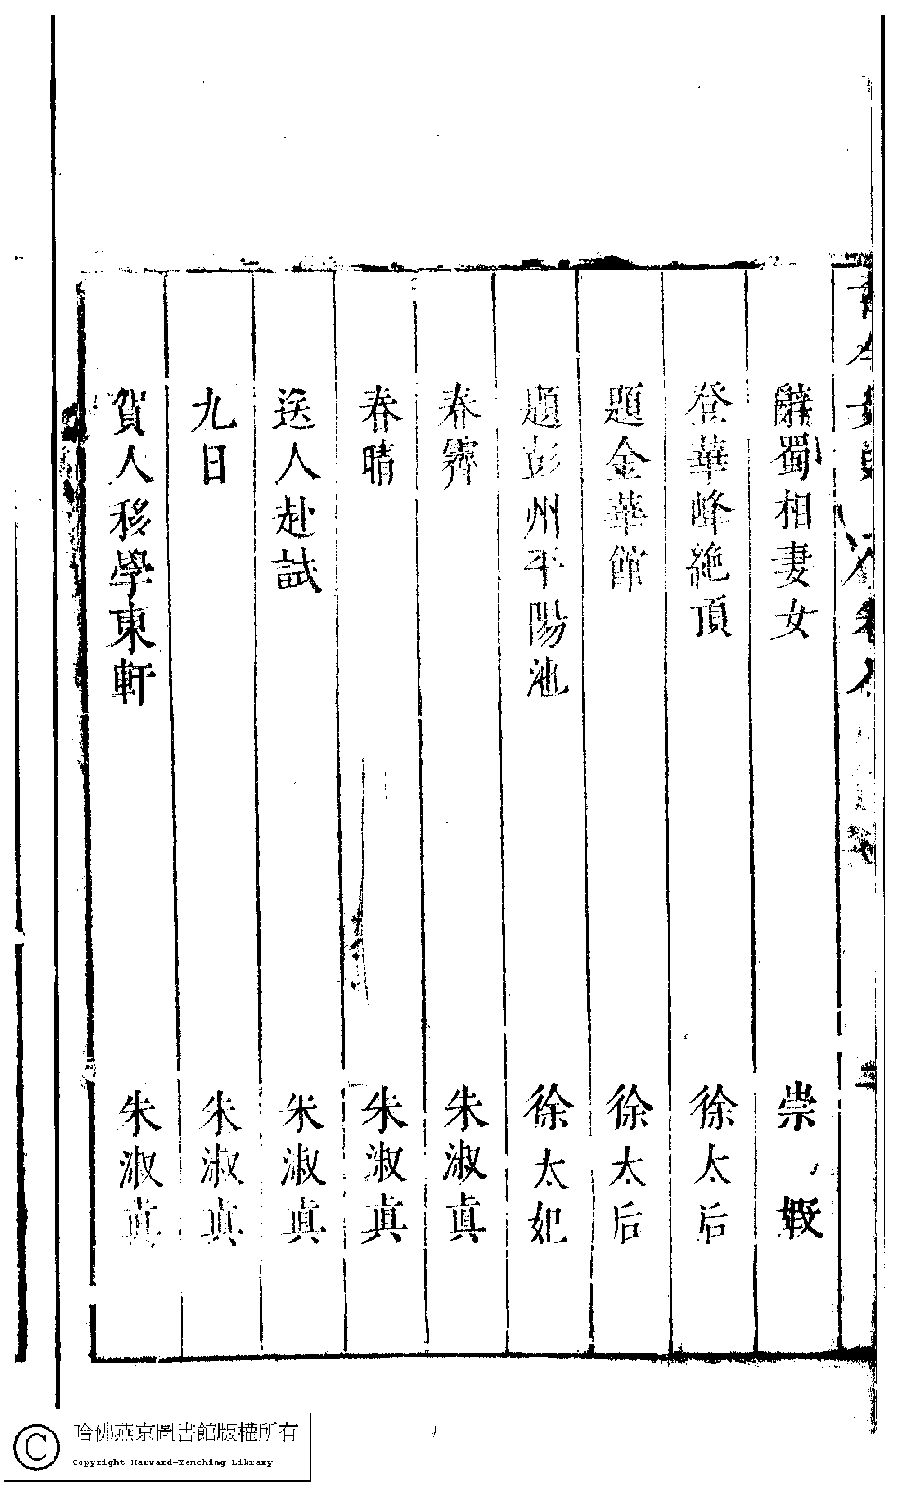 辭蜀相妻女　崇　嘏
登華峰絶頂　徐太后
題金華館　徐太后
題彭州平陽池　徐太妃
春霽　朱淑真
春晴　朱淑真
送人赴試　朱淑真
九日　朱淑真
賀人移學東軒　朱淑真
哈佛燕京圖書館版權所有
Copyright Harvard-Yenching Library